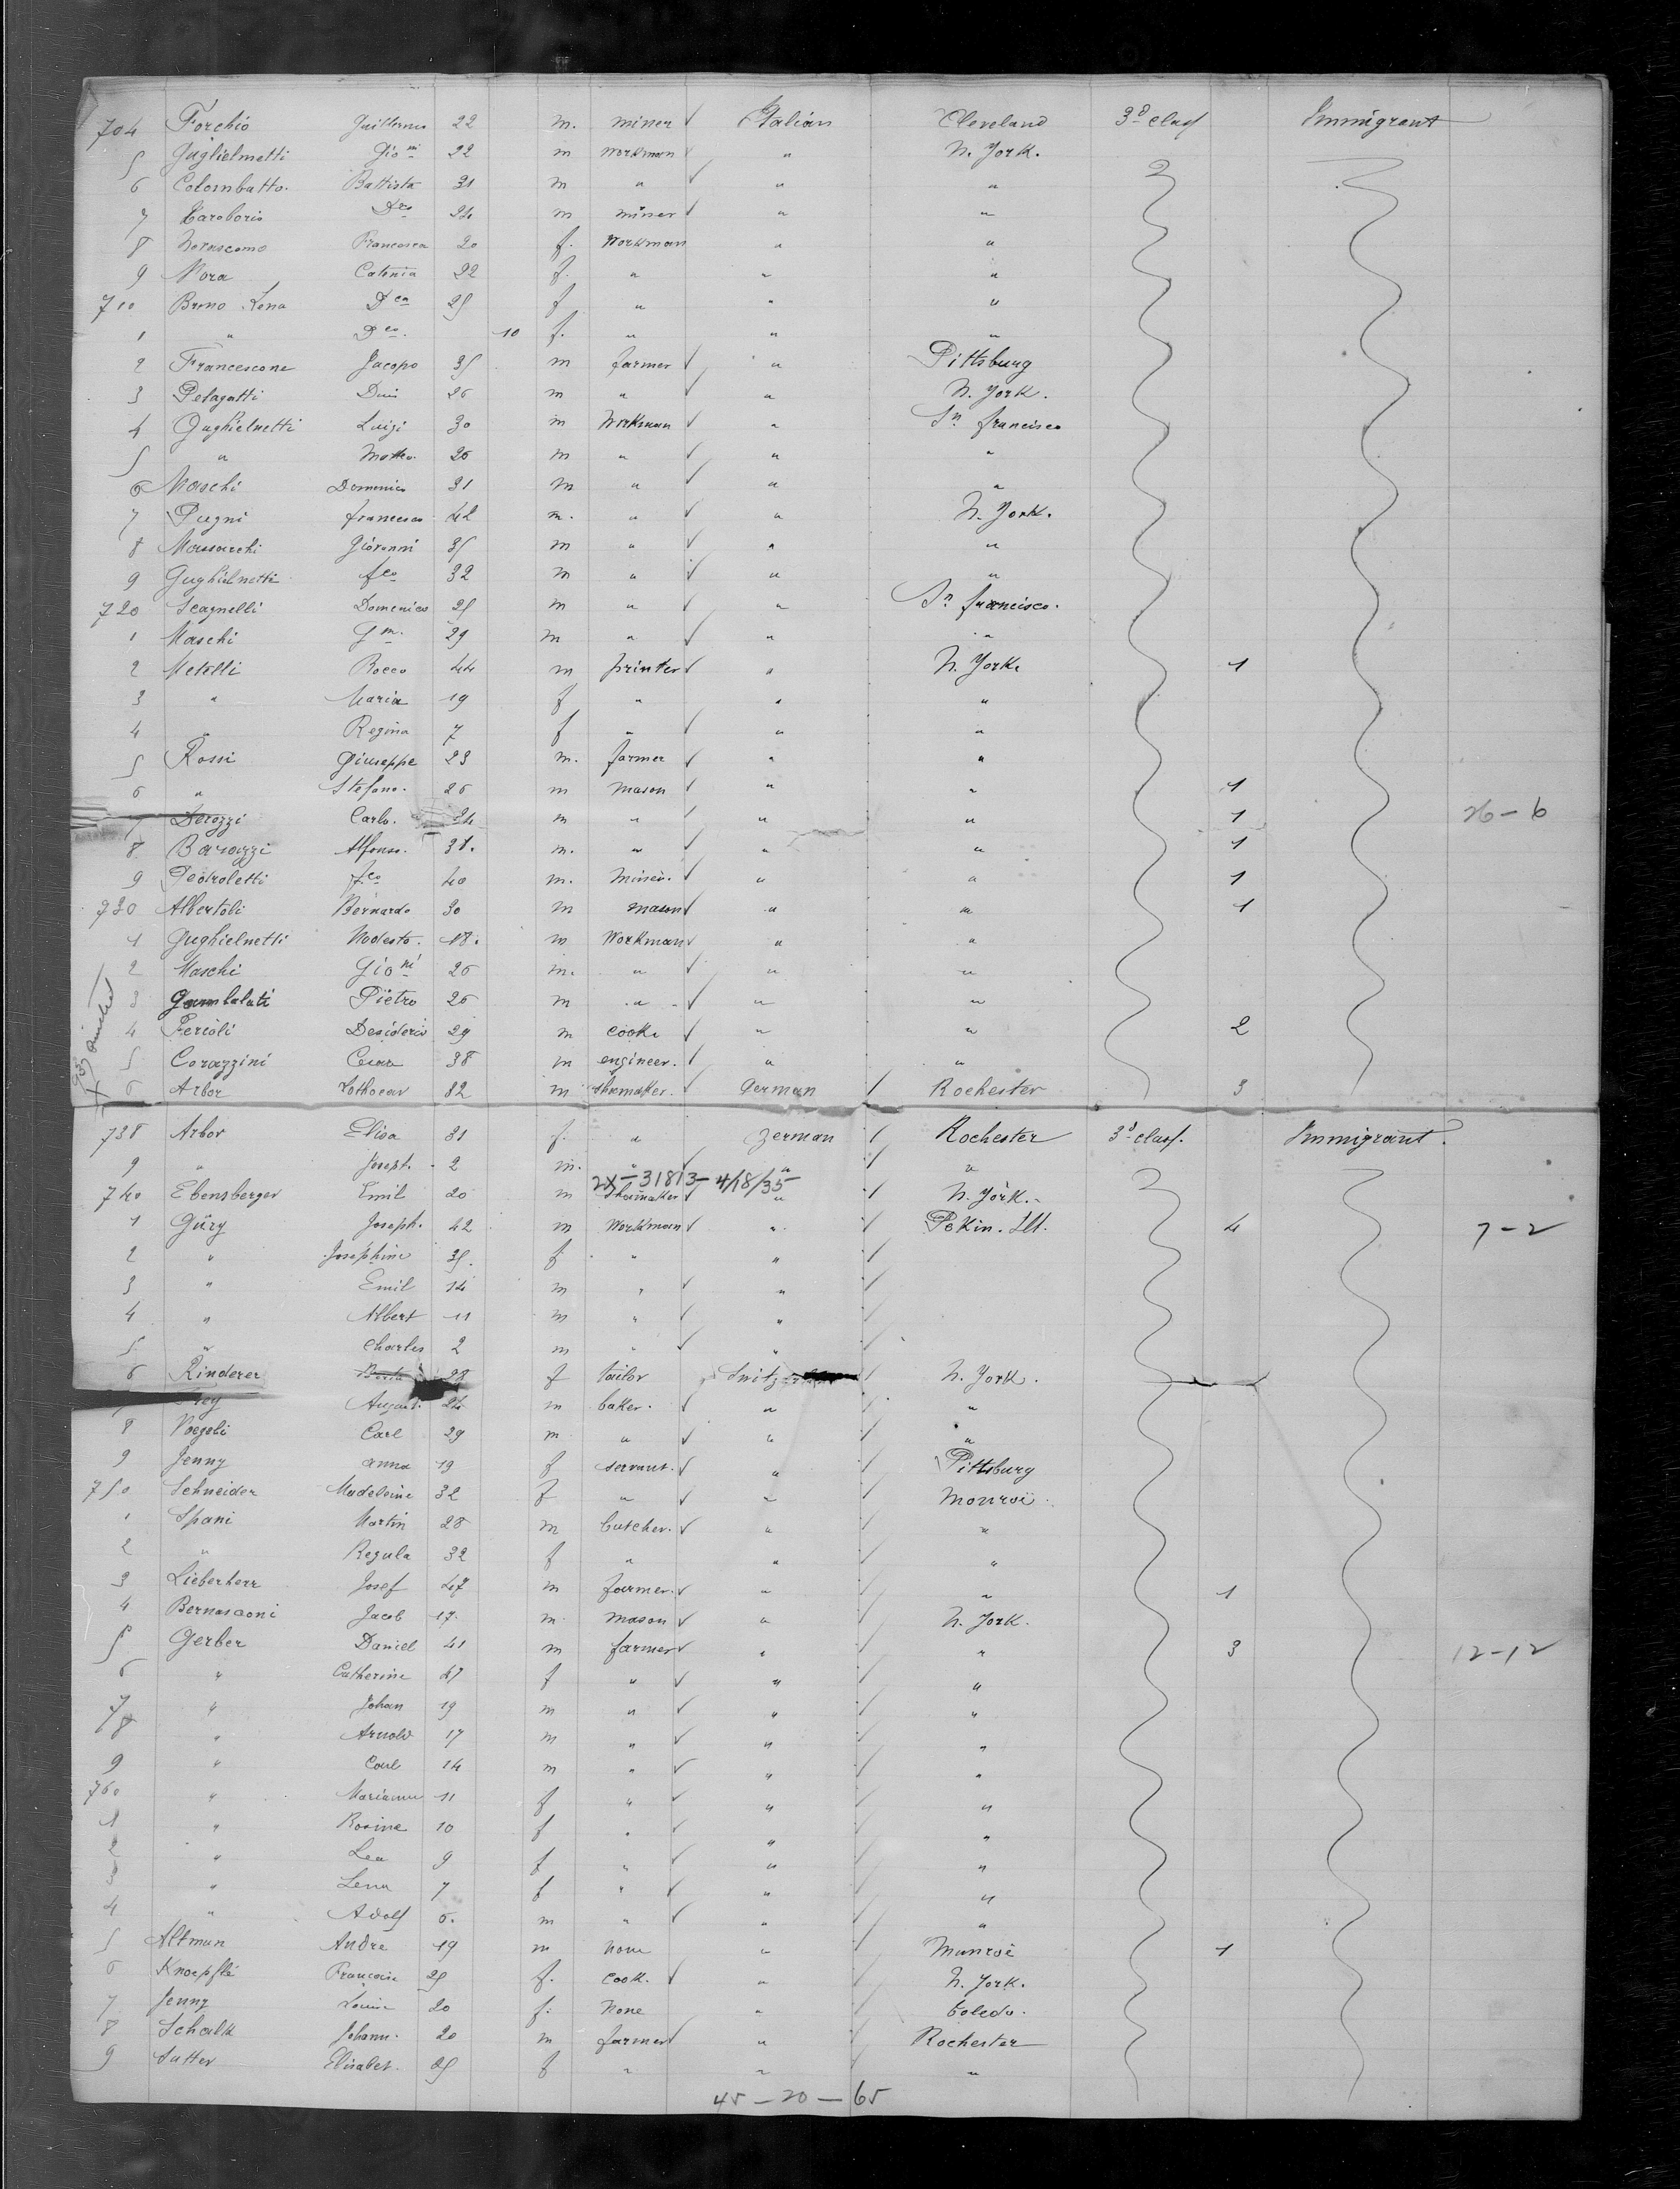 704 Forchio Guillermo 22 m. miner ✓ Italian Cleveland 3d class Immigrant
5 Guglielmetti Gio ni 22 m workman ✓ " N. York.
6 Colombatto. Battista 31 m " ✓ " "
7 Dco 24 m miner ✓ " "
8 Francesca 20 f. workman " "
9 Mora Catonia 22 f. " " "
710 Bruno Lena Dca 25 f " " "
1 " Dco. 10 f. " " "
2 Francescone Jacopo 35 m farmer ✓ " Pittsburg
3 Pelagatti 26 m " ✓ " N. York.
4 Gughielnetti Luigi 30 m Workman ✓ " Sn francisco
5 " Matteo. 26 m " ✓ " "
6 Maschi Domenico 31 m " ✓ " "
7 Pugni francesco 42 m. " ✓ " N. York.
8 Massarchi Giovanni 35 m " ✓ " "
9 Gughielnetti fco 32 m " ✓ " "
720 Scagnelli Domenico 25 m " ✓ " Sn francisco.
1 Maschi Gm. 29 m " ✓ " "
2 Metelli Rocco 44 m printer ✓ " N. York 1
3 " Maria 19 f " " "
4 " Regina 7 f " ✓ " "
5 Rossi Giuseppe 23 m. farmer ✓ " "
6 " Stefano. 26 m mason ✓ " " 1
7 Derozzi Carlo. 34 m " ✓ " " 1 26-6
8 Barazzi Alfonso. 38. m. " ✓ " " 1
9 Pedroletti fco 40 m. miner. ✓ " " 1
730 Albertoli Bernardo 30 m mason ✓ " " 1
1 Gughielnetti Modesto. 18. m Workman ✓ " "
2 Maschi Gio ni 26 m. " ✓ " "
3 Gambalati Pietro 26 m " ✓ " "
4 Ferioli Desiderio 29 m cook ✓ " " 2
5 Corazzini 38 m engineer. ✓ " "
6 Arbor 32 m shoemaker. ✓ German ✓ Rochester 3
738 Arbor Elisa 31 f. " German ✓ Rochester 3d class. Immigrant.
9 " Joseph. 2 m. " ✓ " ✓ "
2X-31813- 4/18/35
740 Ebensberger Emil 20 m Shoemaker ✓ " ✓ N. York.
1 Güry Joseph. 42 m workman ✓ " ✓ Pekin. Ill. 4 7-2
2 " Josephine 35. f " " ✓
3 " Emil 14 m " ✓ " ✓
4 " Albert 11 m " ✓ " ✓
5 " Charles 2 m " ✓ " ✓
6 Rinderer 28 f tailor ✓ N. York.
August. 24 m baker. ✓ " ✓ "
8 Voegeli Carl 29 m " ✓ " ✓ "
9 Jenny anna 19 f servant. ✓ " ✓ Pittsburg
750 Schneider Madeleine 32 f " ✓ " ✓ Monroe
1 Spani Martin 28 m butcher. ✓ " ✓ "
2 " Regula 32 f " " ✓ "
3 Lieberherr Josef 47 m farmer. ✓ " ✓ " 1
4 Bernasconi Jacob 17. m mason ✓ " ✓ N. York.
5 Gerber Daniel 41 m farmer ✓ " ✓ " 3 12-12
6 " Catherine 47 f " ✓ " ✓ "
7 " Johan 19 m " ✓ " ✓ "
8 " Arnold 17 m " ✓ " ✓ "
9 " Carl 14 m " ✓ " ✓ "
760 " Marianne 11 f " ✓ " ✓ "
1 " Rosine 10 f " ✓ " ✓ "
2 " Lea 9 f " ✓ " ✓ "
3 " Lena 7 f " ✓ " ✓ "
4 " Adolf 6. m " ✓ " ✓ "
5 Altman Andre 19 m none " ✓ Munroe 1
6 Knoepfle 25 f. cook. ✓ " ✓ N. York.
7 Jenny Louise 20 f. None " ✓ toledo.
8 Schalk Johann. 20 m farmer ✓ " ✓ Rochester
9 Sutter Elisabet. 25 f " " ✓ "
45-20-65